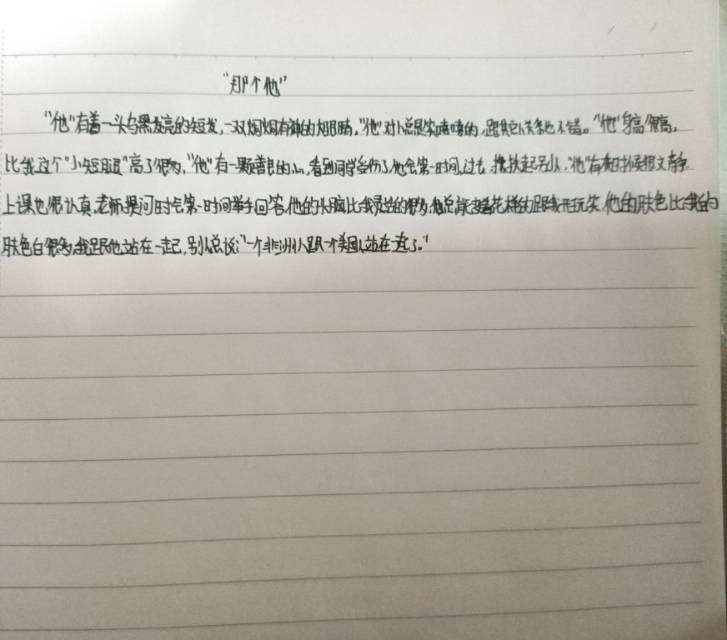 "那个他"
"他"有着一头乌黑发亮的短发,一双炯炯有神的大眼睛,"他"对人总是笑嘻嘻的,跟其它人关系也不错。"他"身高很高,
比我这个"小短腿"高了很多,"他"有一颗善良的心,看到同学受伤了他会第一时间过去,搀扶起别人,"他"有时候很文静
上课也很认真,老师提问时会第一时间举手回答,他的大脑比我灵活的很多,他总能变着花样的跟我开玩笑,他的肤色比我的
肤色白很多,我跟他站在一起,别人总说:"一个非洲人跟一个美国人站在一起了。"